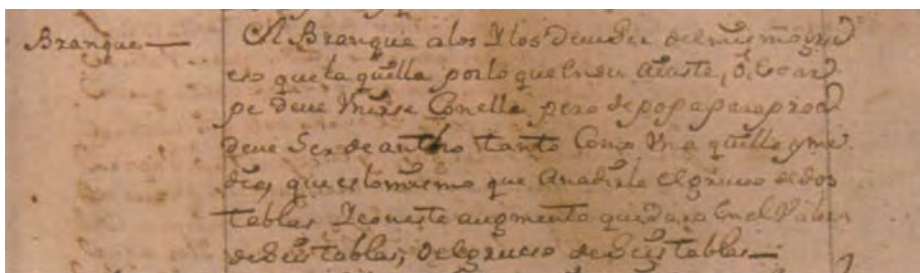 Branque —
El Branque alos Ylos deve Ser del mismo grue
so que la quilla por lo que en su ajuste, o Escar
pe deve Unirse Con ella pero de popa para proa
deve Ser de ancho tanto Como Una quilla y me
dia, que es lo mismo que Anadirle el grueso de dos
tablas Y con este augmento quedara En el
de Seis tablas, o el grueso de Seis tablas —